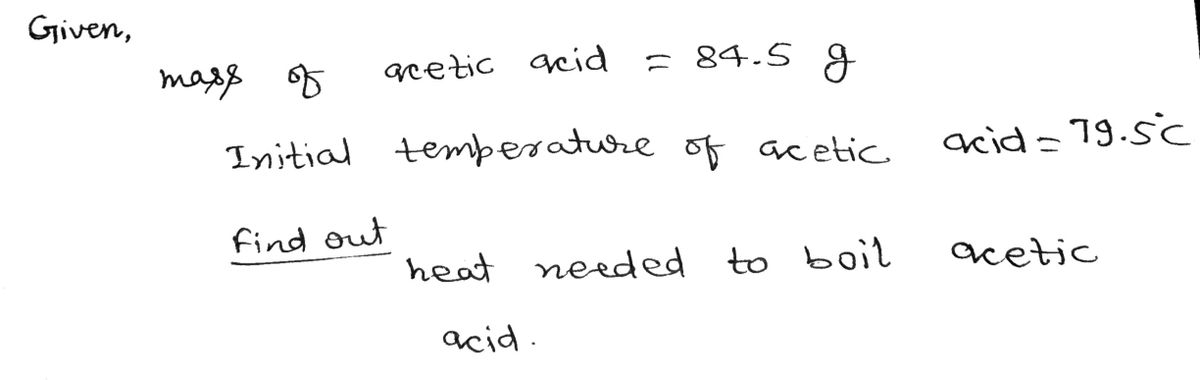 Given,
mass of acetic acid = 84.5 g
Initial temperature of acetic acid = 79.5°C
find out
heat needed to boil acetic
acid.